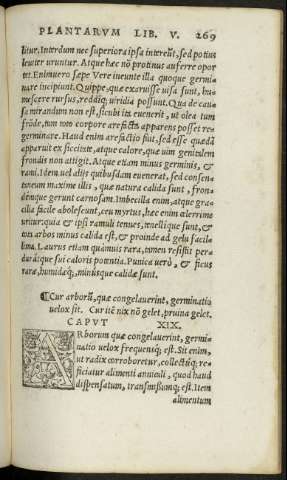 PLANTARVM LIB. V. 269
litur. Interdum nec superiora ipsa intereũt, sed potius
leuiter uruntur. Atque hæc nõ protinus auferre opor
tet. Enimuero sæpe Vere ineunte illa quoque germi-
nare incipiunt. Quippe, quæ exaruisse uisa sunt, hu-
mescere rursus, reddíq; uiridia possunt. Qua de cau-
sa mirandum non est, sicubi ita euenerit, ut olea tum
frõde, tum toto corpore arefacta apparens posset re-
germinare. Haud enim arefactio fuit, sed esse quædã
apparuit ex siccitate, atque calore, quæ uim genitulem
frondis non attigit. Atque etiam minus germinis, &
rami. Idem uel alijs quibusdam euenerat, sed consen-
taneum maxime illis, quæ natura calida sunt, fron-
démque gerunt carnosam. Imbecilla enim, atque gra-
cilia facile abolescunt, ceu myrtus, hæc enim alterrime
uritur, quia & ipsi ramuli tenues, imbellíque sunt, &
tota arbos minus calida est, & proinde ad gelu facilli-
ma. Laurus etiam quãuis rara, tamen resistit per-
durátque sui caloris potentia. Punica uerò, & ficus
raræ, humidæq́;, minúsque calidæ sunt.
¶Cur arborũ, quæ congelauerint, germinatio
uelox sit. Cur itẽ nix nõ gelet, pruina gelet.
CAPVT XIX.
ARborum quæ congelauerint, germi-
natio uelox frequensq́; est. Sit enim,
ut radix corroboretur, collectúq; re-
ficiatur alimenti annuiuli, quod haud
dispensatum, transmissumq́; est. Item
alimentum